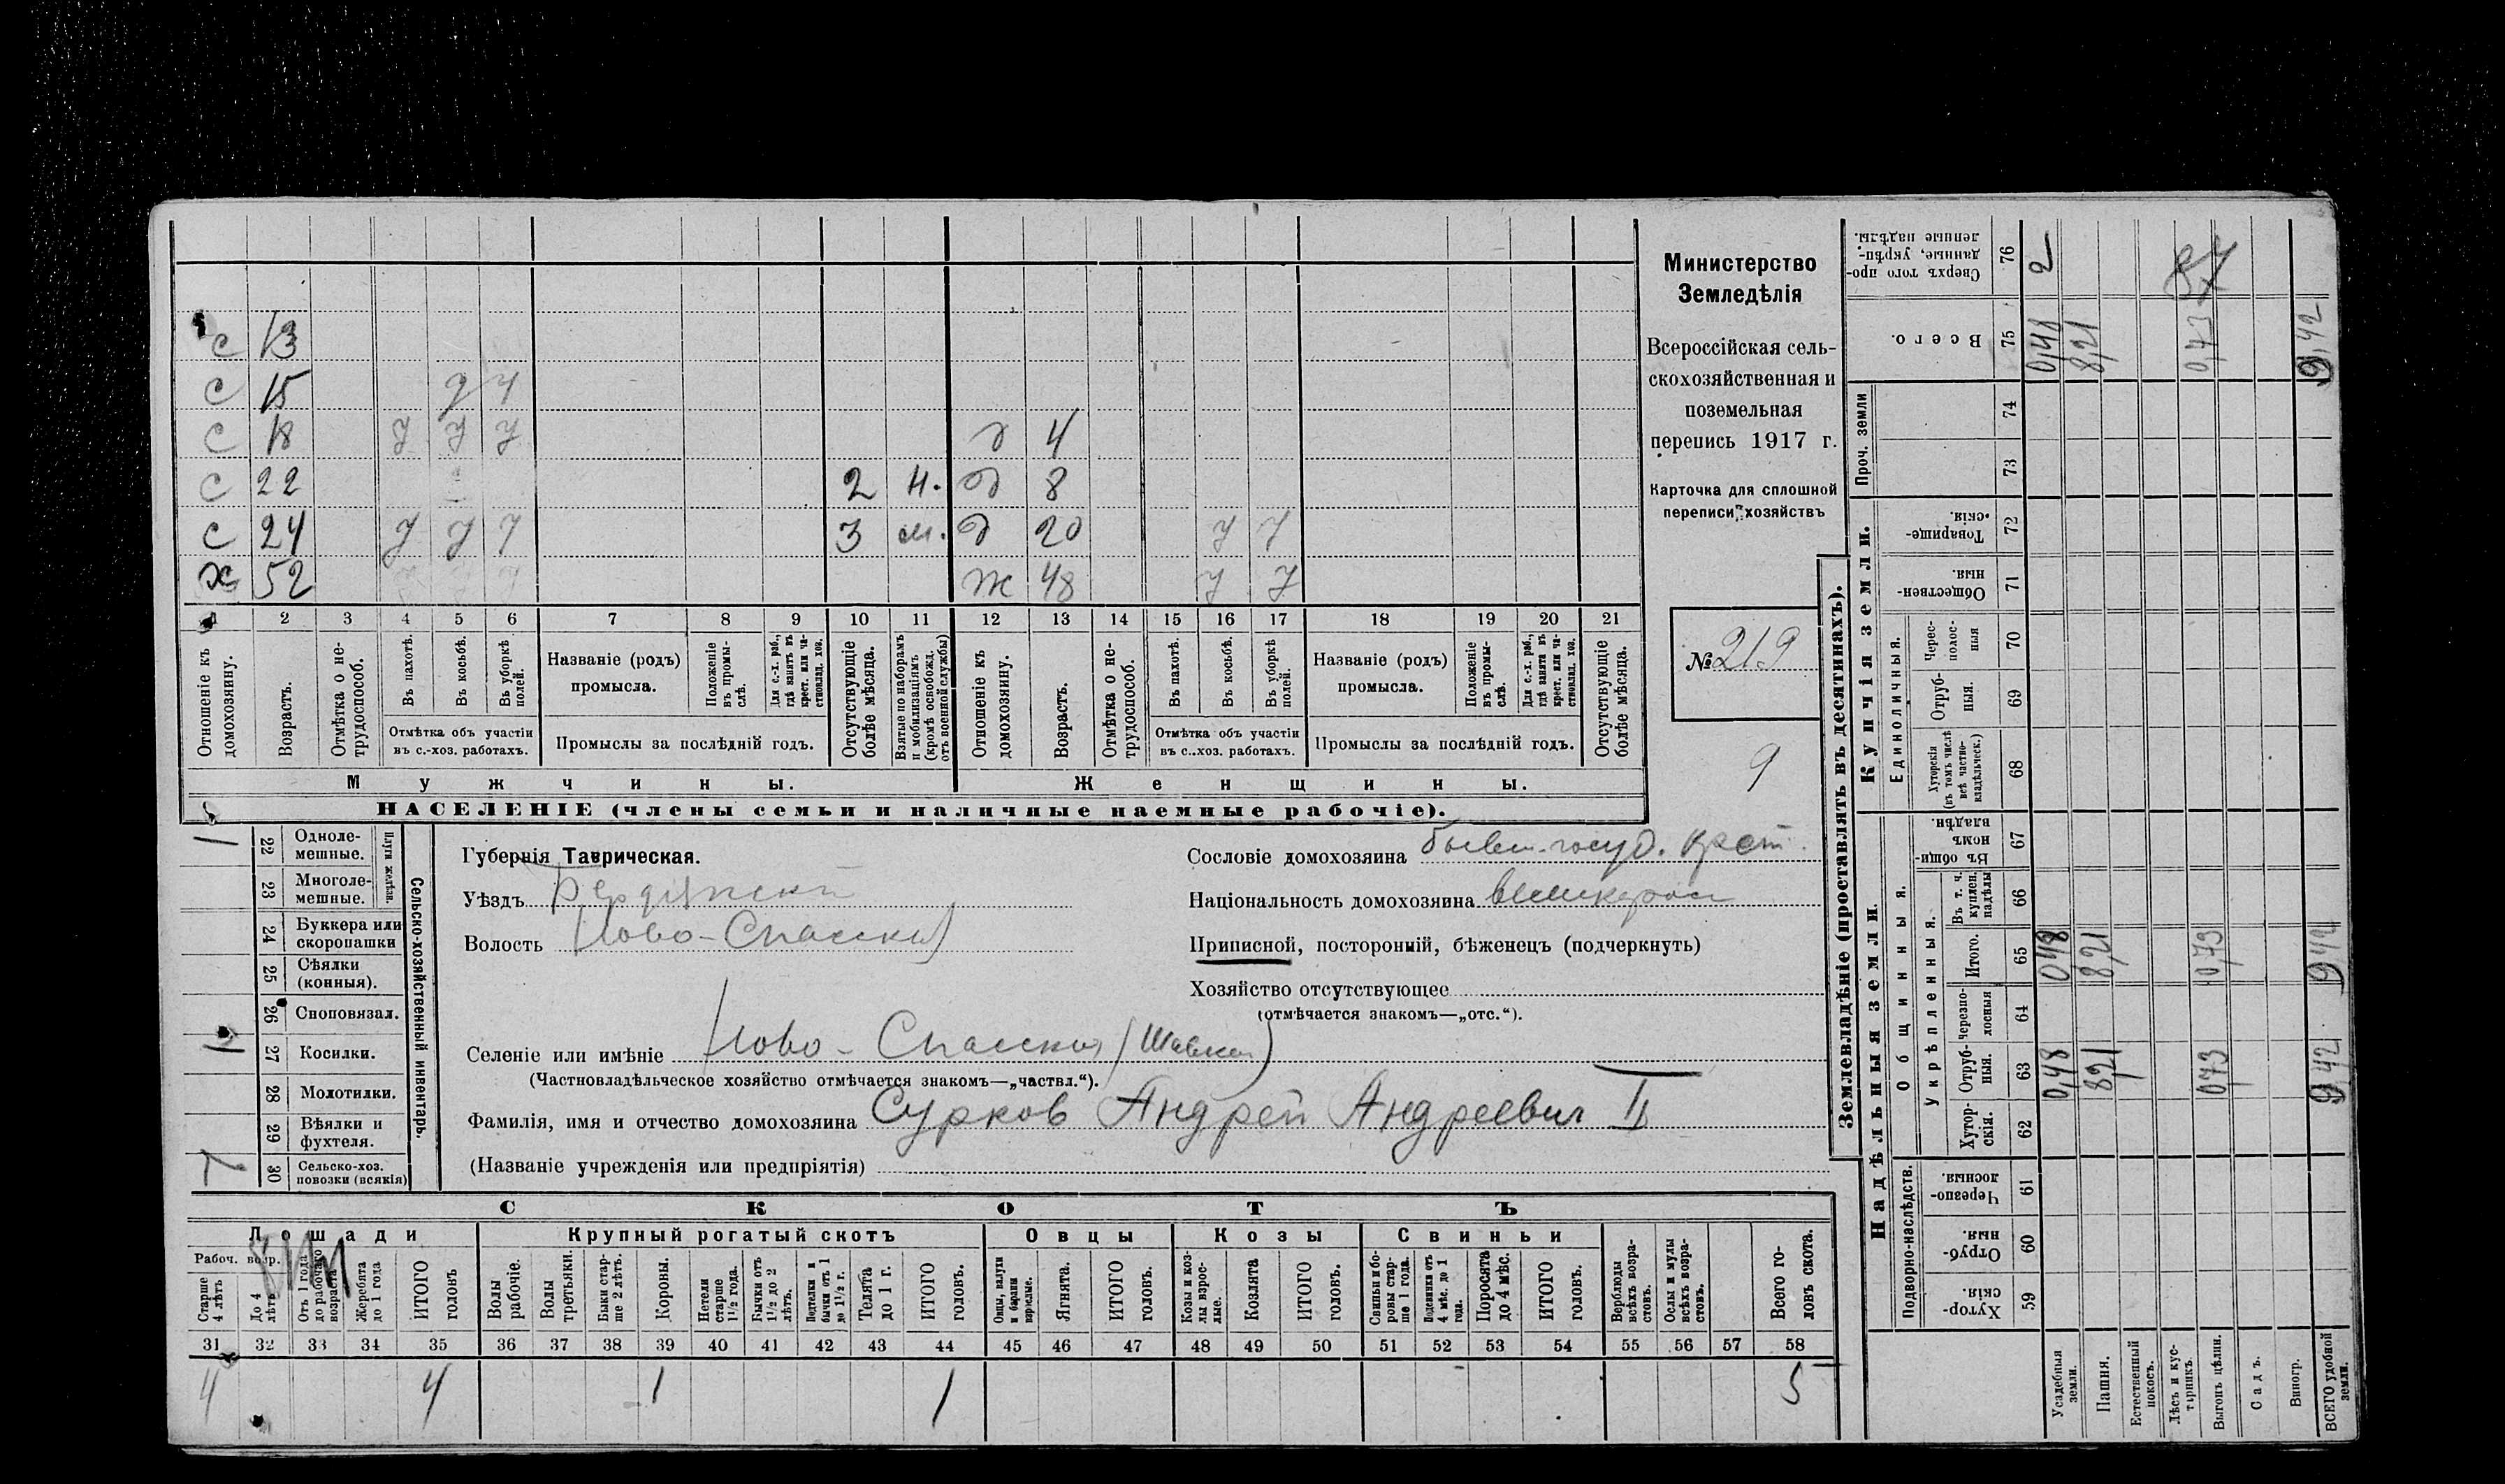 с 13
с 15 у у
с 18 у у у д 4
с 22 2 н. д 8
с 24 у у у 3 м. д 20 у у
х 52 ж 48 у у
1 2 3 4 5 6 7 8 9 10 11 12 13 14 15 16 17 18 19 20 21
Отношеніе къ домохозяину.
Возрастъ.
Отмѣтка о нетрудоспособ.
Въ пахотѣ.
Въ косьбѣ.
Въ уборкѣ полей.
Отмѣтка объ участіи
въ с.-хоз. работахъ.
Названіе (родъ)
промысла.
Положеніе въ промыслѣ.
Для с.-х. раб., гдѣ занятъ въ крест. или частновлад. хоз.
Промыслы за послѣдній годъ.
Отсутствующіе болѣе мѣсяца.
Взятые по наборамъ и мобилизаціямъ (кромѣ освобожд. отъ военной службы)
Отношеніе къ домохозяину.
Возрастъ.
Отмѣтка о нетрудоспособ.
Въ пахотѣ.
Въ косьбѣ.
Въ уборкѣ полей.
Отмѣтка объ участіи
въ с.-хоз. работахъ.
Названіе (родъ)
промысла.
Положеніе въ промыслѣ.
Для с.-х. раб., гдѣ занята въ крест. или частновлад. хоз.
Промыслы за послѣдній годъ.
Отсутствующіе болѣе мѣсяца.
Мужчины.
Женщины.
НАСЕЛЕНІЕ (члены семьи и наличные наемные рабочіе).
Министерство
Земледѣлія
Всероссійская сель-
скохозяйственная и
поземельная
перепись 1917 г.
Карточка для сплошной
переписи хозяйствъ
№ 219
9
22 Одноле-
мешные.
23 Многоле-
мешные.
Плуги желѣзн.
24 Буккера или
скоропашки
25 Сѣялки
(конныя).
26 Сноповязал.
27 Косилки.
28 Молотилки.
29 Вѣялки и
фухтеля.
30 Сельско-хоз.
повозки (всякія)
Сельско-хозяйственный инвентарь.
1
1
1
Губернія Таврическая.
Уѣздъ Бердянскій
Волость Ново-Спасская
Сословіе домохозяина бывш. госуд. крест.
Національность домохозяина великоросс
Приписной, посторонній, бѣженецъ (подчеркнуть)
Хозяйство отсутствующее
(отмѣчается знакомъ—„отс.“).
Селеніе или имѣніе Ново-Спасская
(Частновладѣльческое хозяйство отмѣчается знакомъ—„частвл.“).
Фамилія, имя и отчество домохозяина Сурков Андрей Андреевич II
(Названіе учрежденія или предпріятія)
СКОТЪ
Лошади
Крупный рогатый скотъ
Овцы
Козы
Свиньи
Рабоч. возр.
Старше 4 лѣтъ
До 4 лѣтъ
Отъ 1 года до рабочаго возраста
Жеребята до 1 года
ИТОГО головъ
Волы рабочіе.
Волы третьяки.
Быки старше 2 лѣтъ.
Коровы.
Нетели старше 1½ года.
Бычки отъ 1½ до 2 лѣтъ.
Подтелки и бычки отъ 1 до 1½ г.
Телята до 1 г.
ИТОГО головъ.
Овцы, валухи и бараны взрослые.
Ягнята.
ИТОГО головъ.
Козы и козлы взрослые.
Козлята
ИТОГО головъ.
Свиньи и боровы старше 1 года.
Подсвинки отъ 4 мѣс. до 1 года.
Поросята до 4 мѣс.
ИТОГО головъ.
Верблюды всѣхъ возрастовъ.
Ослы и мулы всѣхъ возрастовъ.
Всего головъ скота.
31 32 33 34 35 36 37 38 39 40 41 42 43 44 45 46 47 48 49 50 51 52 53 54 55 56 57 58
4 4 1 1 5
Землевладѣніе (проставлять въ десятинахъ).
Надѣльныя земли.
Купчія земли.
Проч. земли
Подворно-наслѣдств.
Общинныя.
Укрѣпленныя.
Единоличныя.
Хуторскія. 59
Отрубныя. 60
Черезполосныя. 61
Хуторскія. 62
Отрубныя. 63
Черезполосныя 64
Итого. 65
Въ т. ч. куплен. надѣлы 66
Въ общинномъ владѣн. 67
Хуторскія (въ томъ числѣ всѣ частновладѣльческ.) 68
Отрубныя. 69
Черезполосныя 70
Общественныя. 71
Товарищескія. 72
73
74
Всего. 75
Сверхъ того проданные, укрѣпленные надѣлы. 76
Усадебныя земли. 0,48 048 0,48 2
Пашня. 821 821 8,21
Естественный покосъ.
Лѣсъ и кустарникъ.
Выгонъ цѣлин. 073 0,73 0,73
Садъ.
Виногр.
ВСЕГО удобной земли. 942 942 9,42